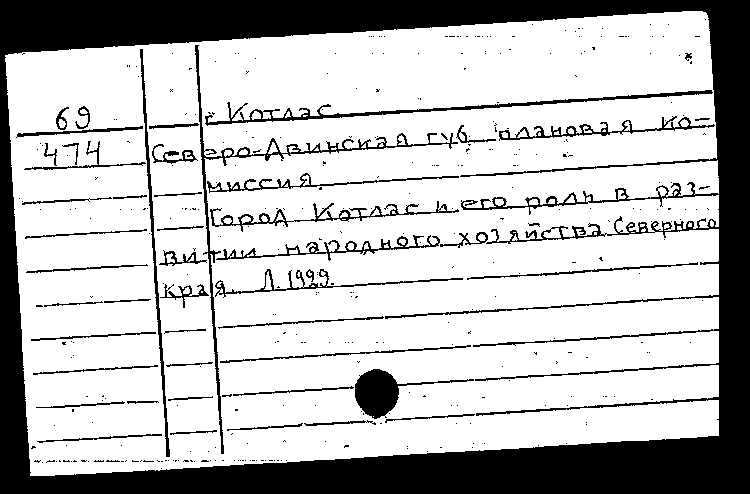 69 г. Котлас.
474 Северо-Двинская губ. плановая ко-
миссия.
Город Котлас и его роль в раз-
витии народного хозяйства Северного
края. Л. 1929.